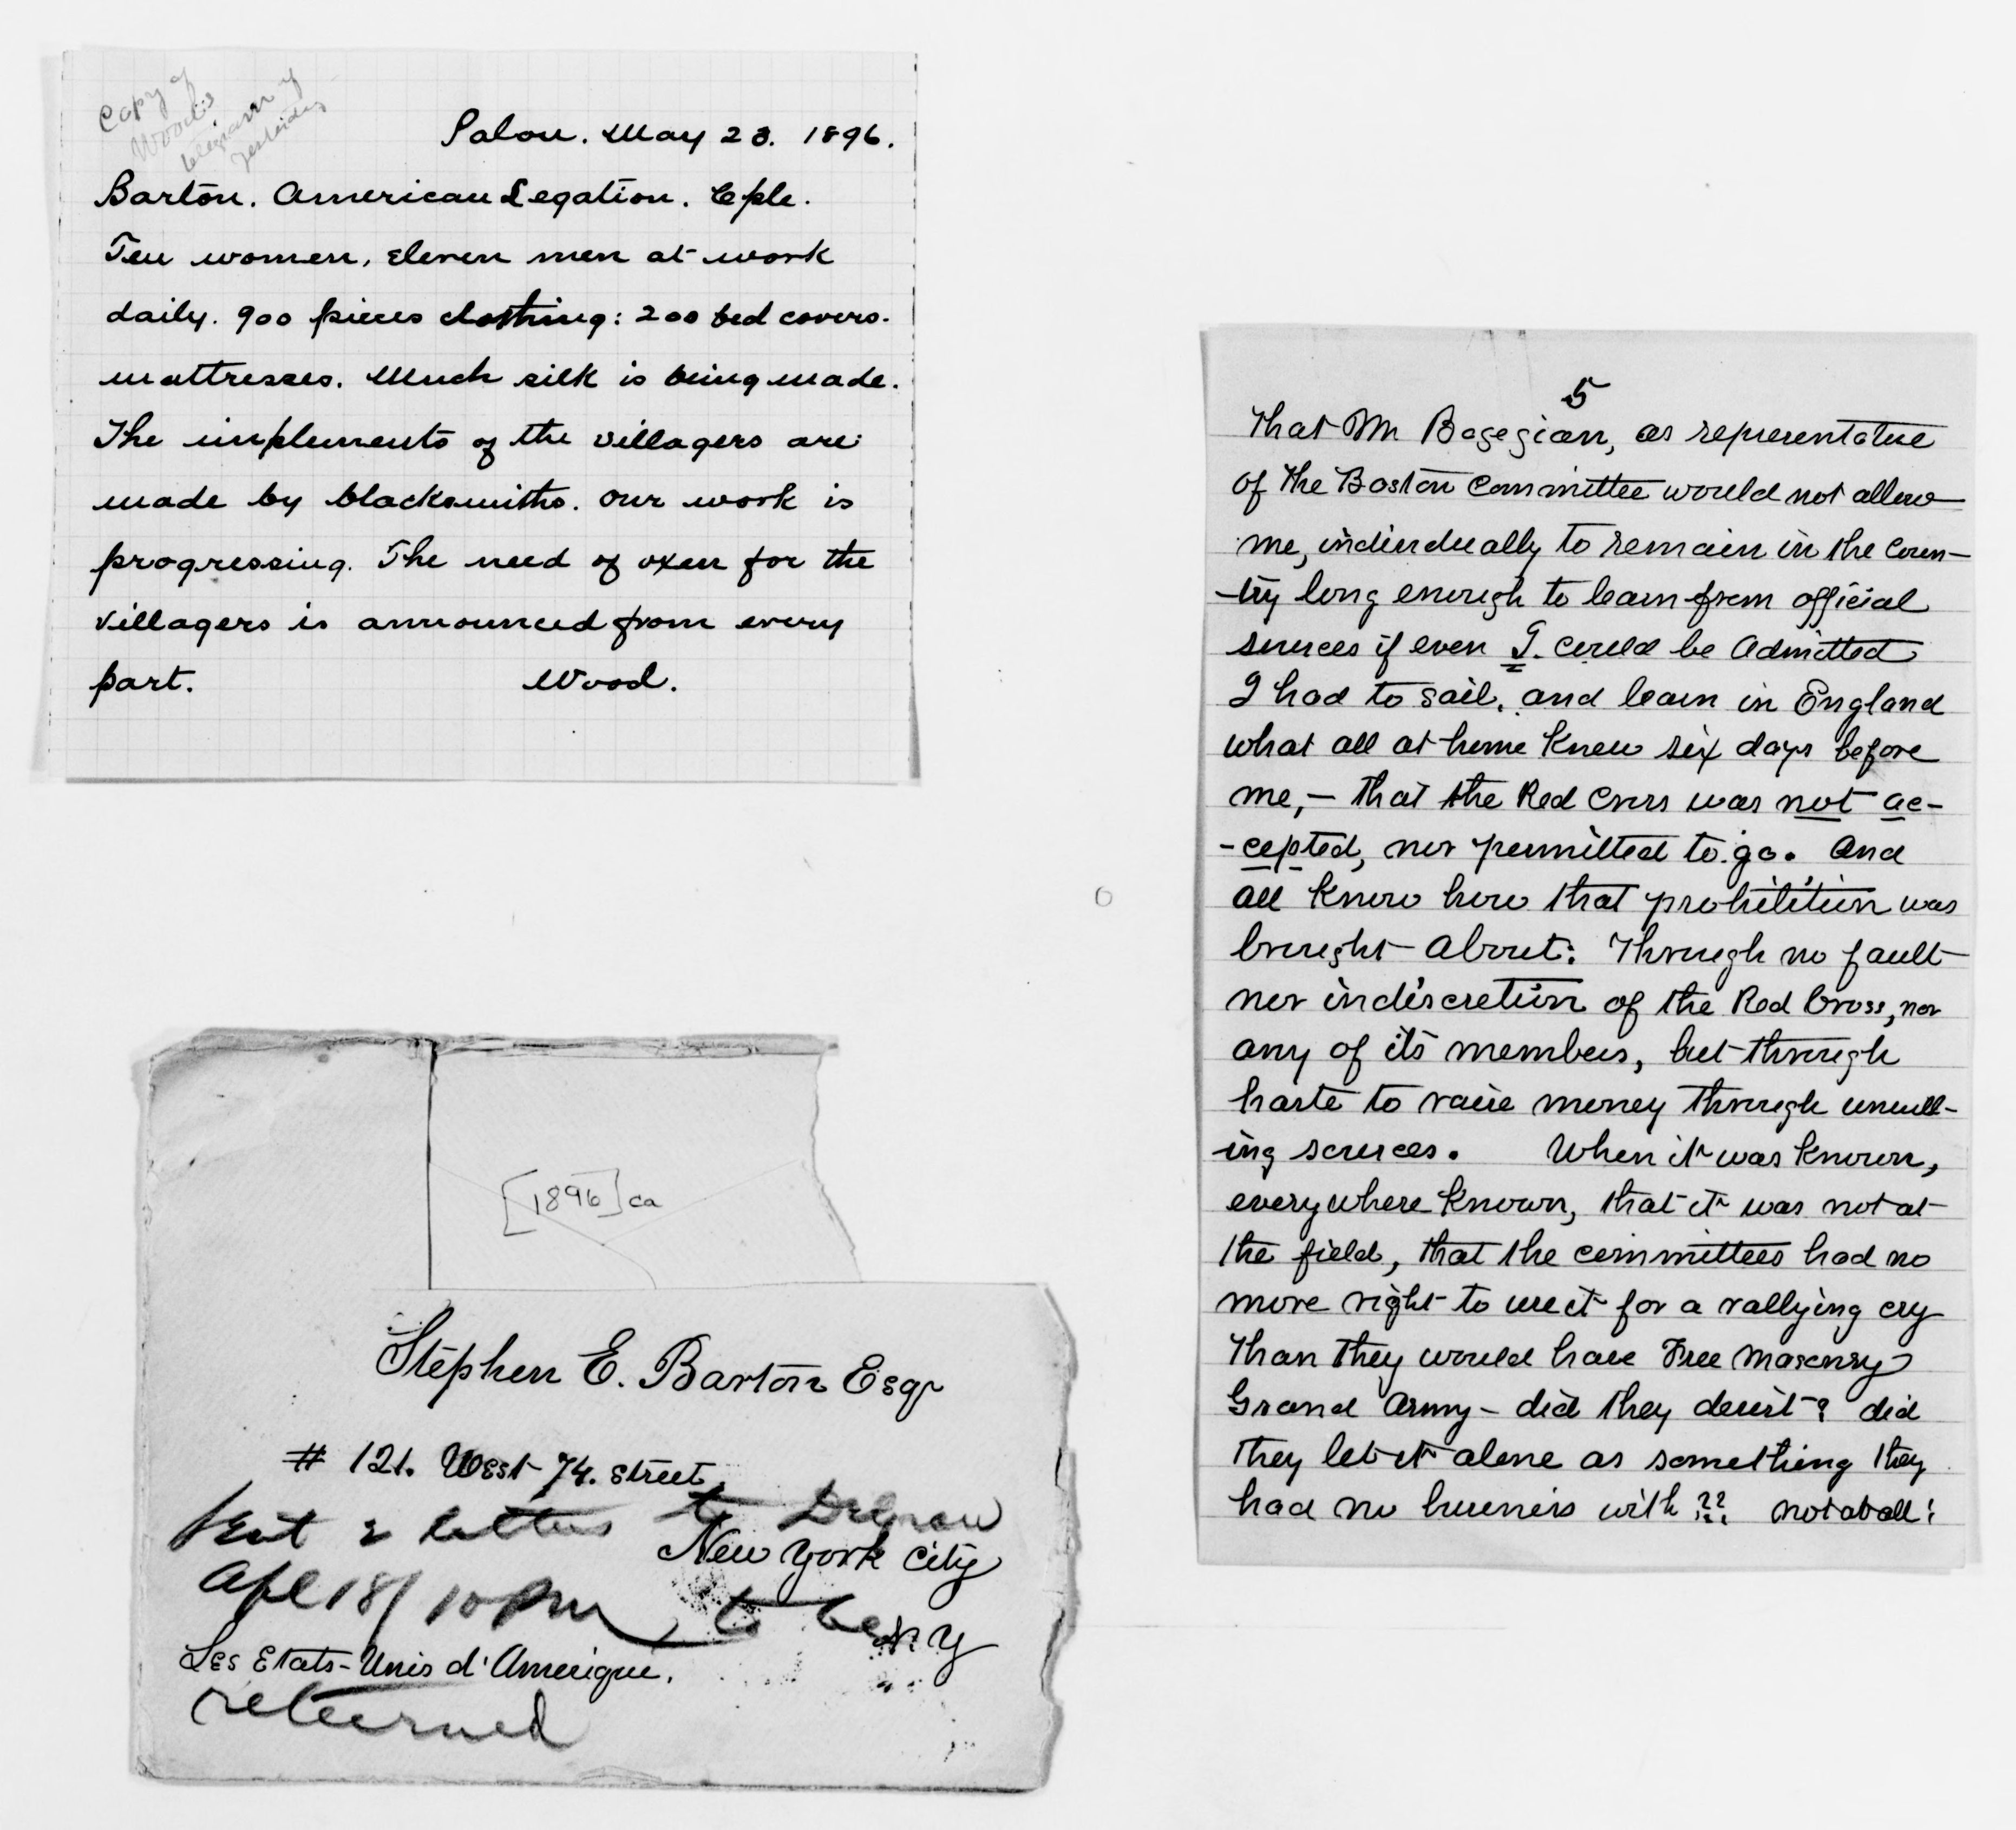 Copy of
Wood's
telegram of
yesterday
Palou. May 23. 1896.
Barton. American Legation. Cple.
Ten women, eleven men at work
daily. 900 pieces clothing: 200 bed covers.
mattresses. Much silk is being made.
The implements of the villagers are
made by blacksmiths. Our work is
progressing. The need of oxen for the
villagers is announced from every
part. Wood.
[1896] ca
Stephen E. Barton Esqr
# 121. West 74. Street
sent 2 letters to
New York City
Apl 18/ 10 PM to be
N Y
Les Etats-Unis d'Amerique.
returned
5
that Mr Bogegian, as representative
of the Boston Committee would not allow
me, individually to remain in the coun-
-try long enough to learn from official
sources if even I could be admitted
I had to sail, and learn in England
what all at home knew six days before
me, — that the Red Cross was not ac-
-cepted, nor permitted to go. And
all know how that prohibition was
brought about: Through no fault
nor indiscretion of the Red Cross, nor
any of its members, but through
haste to raise money through unwill-
ing sources. When it was known,
everywhere known, that it was not at
the field, that the committees had no
more right to use it for a rallying cry
than they would have Free Masonry
Grand Army - did they desist? did
they let it alone as something they
had no business with ?? not at all!